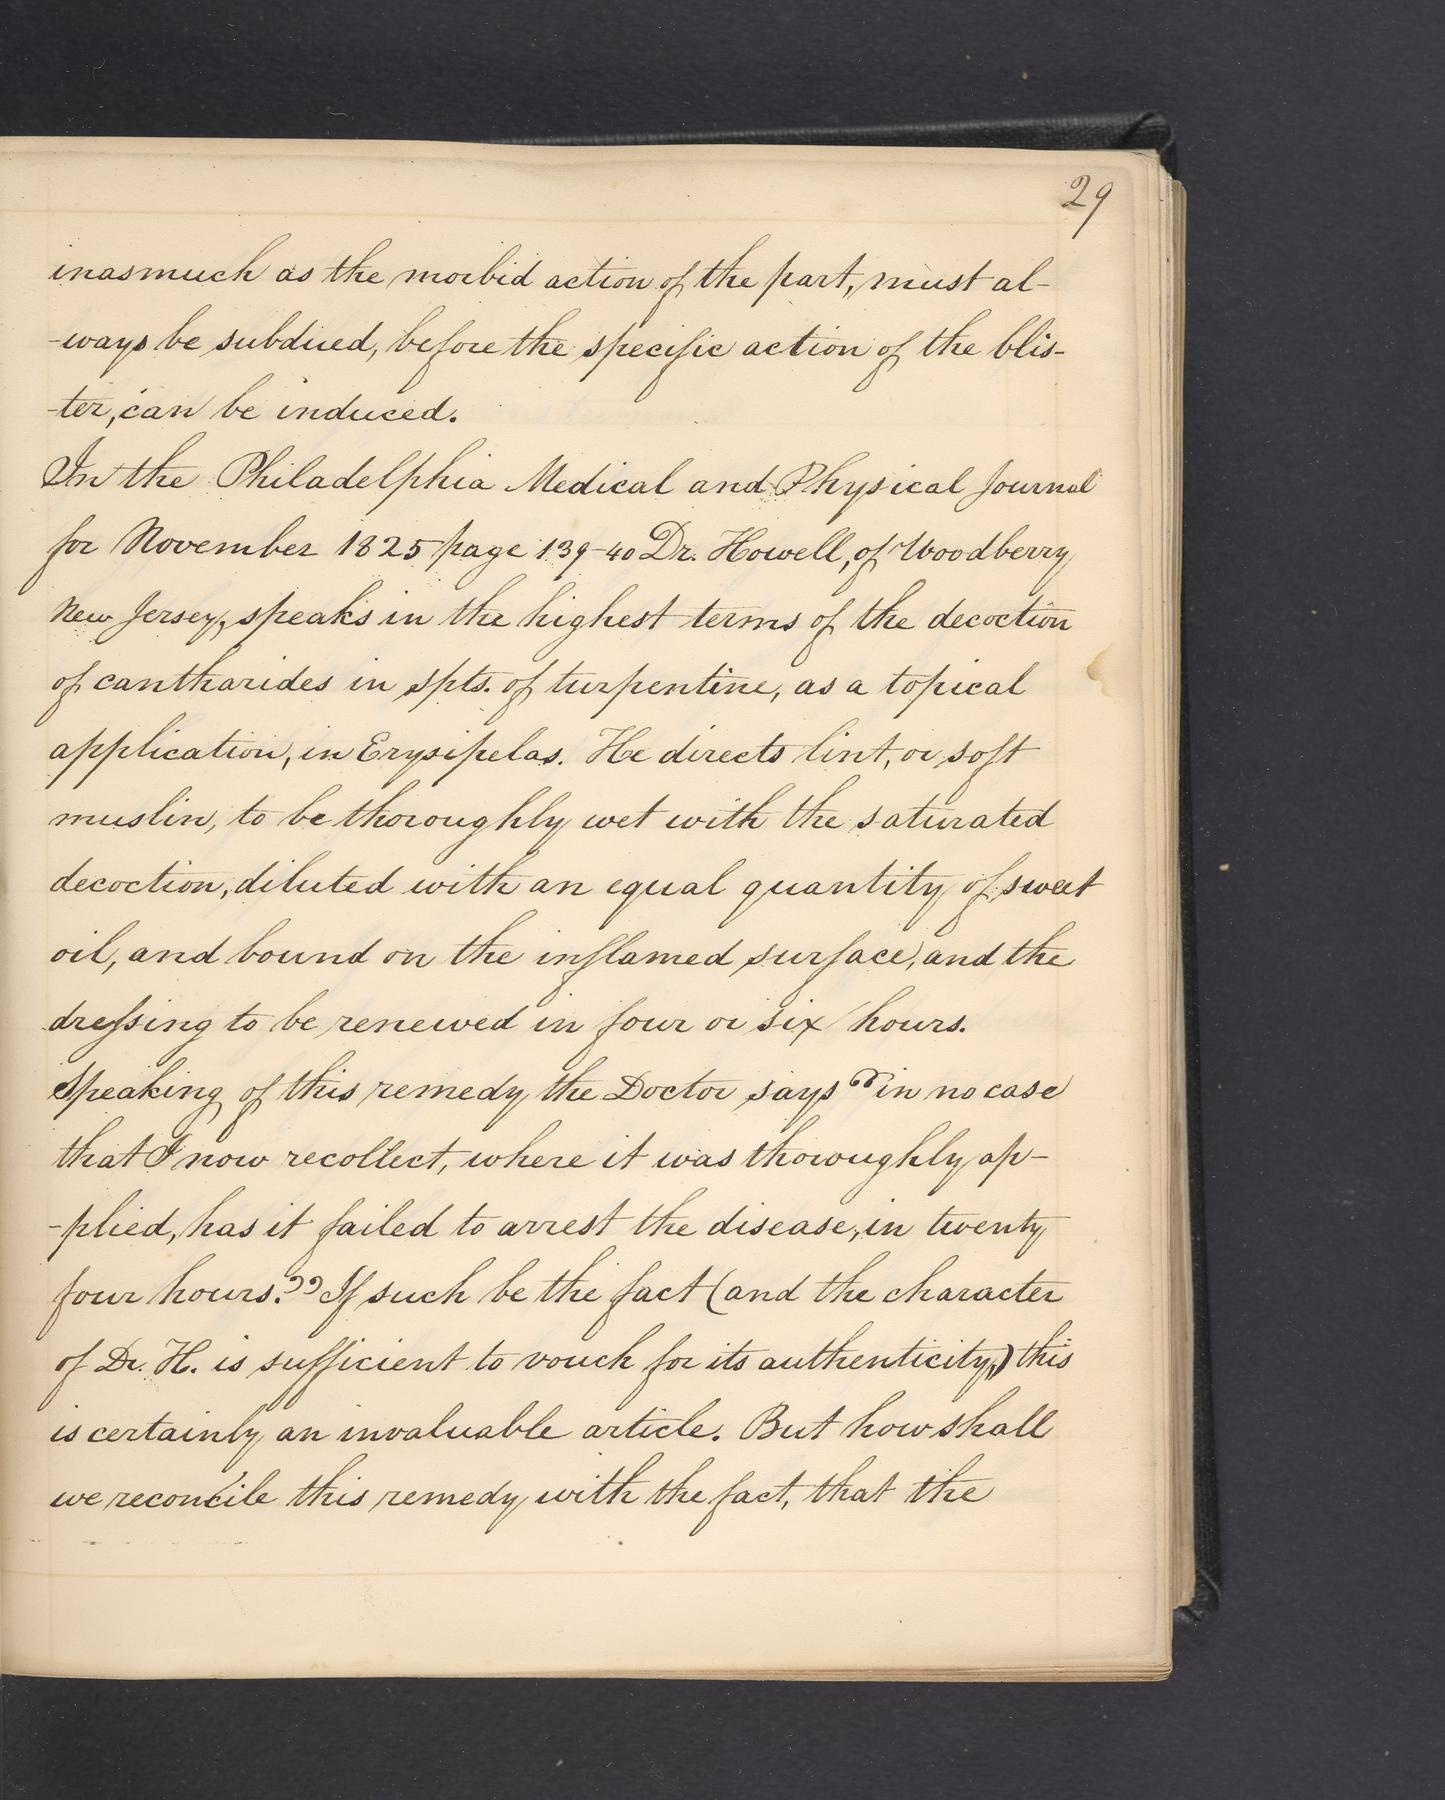 29
inasmuch as the morbid action of the part, must al-
-ways be subdued, before the specific action of the blis-
-ter, can be induced.
In the Philadelphia Medical and Physical Journal
for November 1825 page 139-40 Dr. Howell, of Woodberry
New Jersey, speaks in the highest terms of the decoction
of cantharides in spts. of turpentine, as a topical
application, in Erysipelas. He directs lint, or soft
muslin, to be thoroughly wet with the saturated
decoction, diluted with an equal quantity of sweet
oil, and bound on the inflamed surface, and the
dreſsing to be renewed in four or six hours.
Speaking of this remedy the Doctor says "in no case
that I now recollect, where it was thoroughly ap-
-plied, has it failed to arrest the disease, in twenty
four hours." If such be the fact (and the character
of Dr. H. is sufficient to vouch for its authenticity,) this
is certainly an invaluable article. But how shall
we reconcile this remedy with the fact, that the